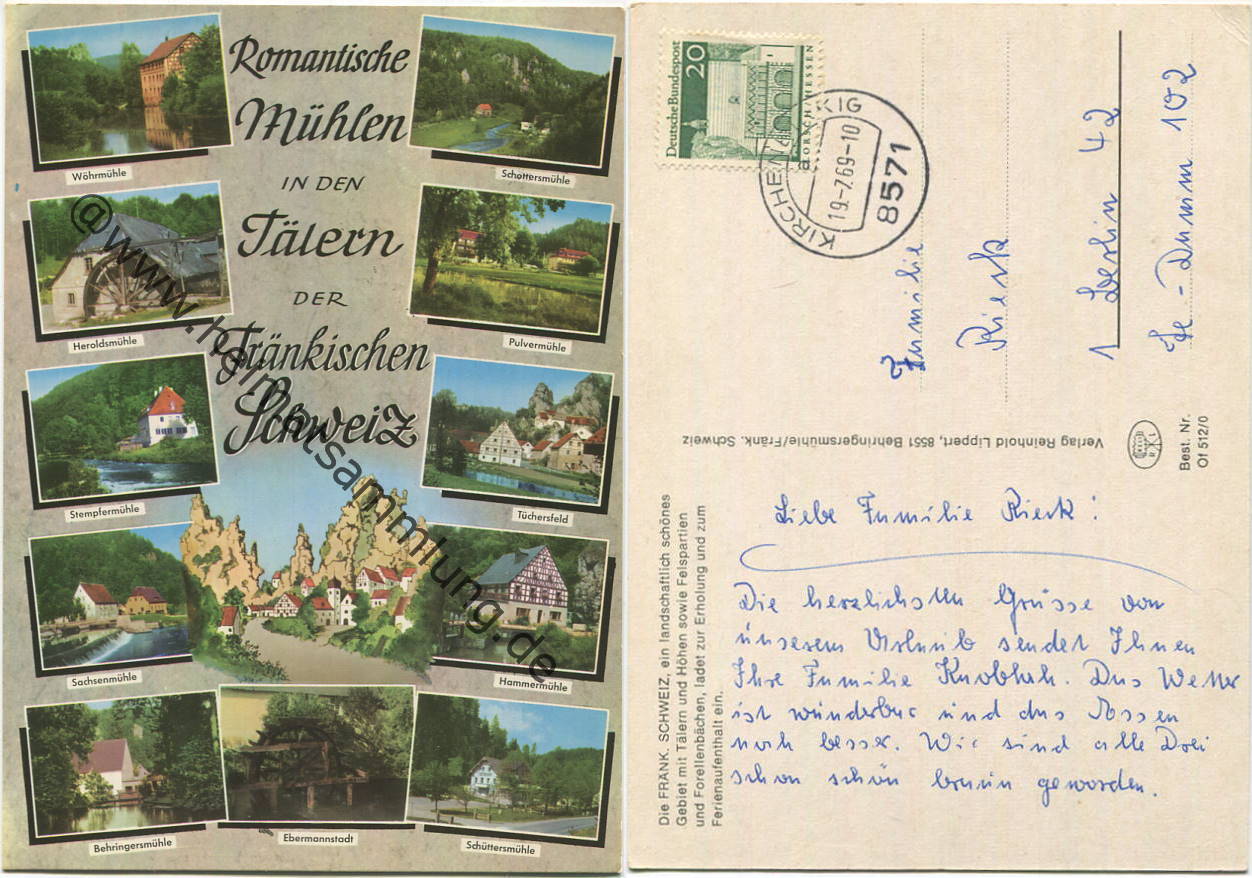 Romantische
Mühlen
IN DEN
Tälern
DER
Fränkischen
Schweiz
Wöhrmühle
Schottersmühle
Heroldsmühle
Pulvermühle
Stempfermühle
Tüchersfeld
Sachsenmühle
Hammermühle
Behringersmühle
Ebermannstadt
Schüttersmühle
@www.heimatsammlung.de
Deutsche Bundespost
20
LORSCH/HESSEN
KIRCHEN KIG
19.-7.69-10
8571
Familie
Rieck
1 Berlin 42
Te-Damm 102
Verlag Reinhold Lippert, 8551 Behringersmühle/Fränk. Schweiz
R L
Best. Nr.
Of 512/0
Die FRÄNK. SCHWEIZ, ein landschaftlich schönes
Gebiet mit Tälern und Höhen sowie Felspartien
und Forellenbächen, ladet zur Erholung und zum
Ferienaufenthalt ein.
Liebe Familie Rieck!
Die herzlichsten Grüsse von
unserem Urlaub sendet Ihnen
Ihre Familie Das Wetter
ist wunderbar und das Essen
noch besser. Wir sind alle Drei
schon schön braun geworden.